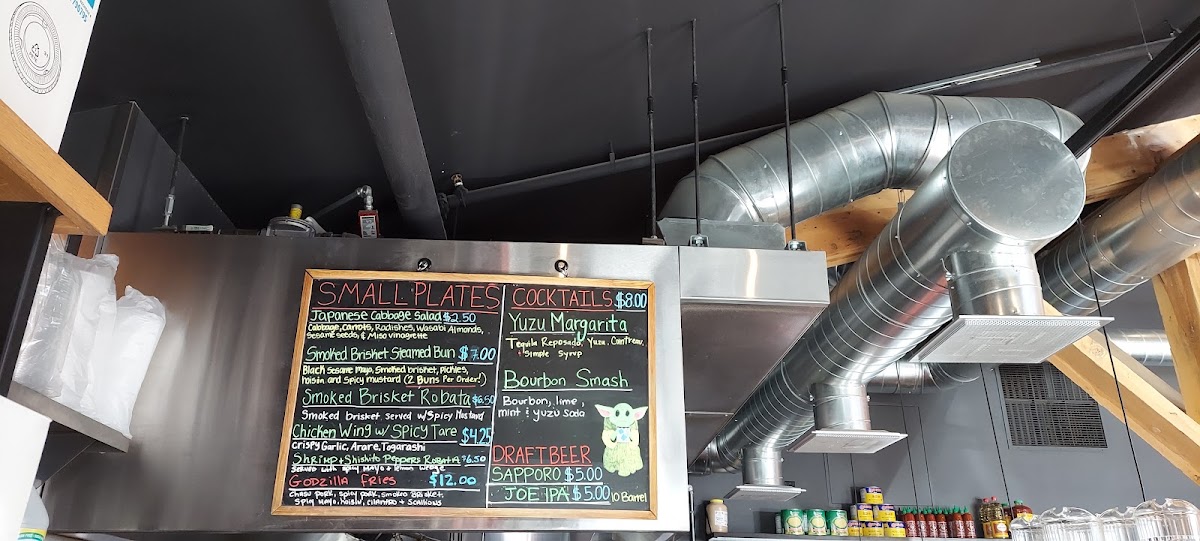 SMALL PLATES
Japanese Cabbage Salad $2.50
Cabbage, Carrots, Radishes, Wasabi Almonds,
Sesame seeds, & Miso vinagrette
Smoked Brisket Steamed Bun $7.00
Black Sesame Mayo, Smoked brisket, pickles,
hoisin and Spicy mustard (2 Buns Per Order!)
Smoked Brisket Robata $6.50
Smoked brisket served w/Spicy Mustard
Chicken Wing w/ Spicy Tare $4.25
Crispy Garlic, Arare, Togarashi
Shrimp + Shishito Peppers Robata $6.50
Served with spicy Mayo + lemon wedge
GODZILLA FRIES $12.00
Chasu pork, spicy pork, smoked Brisket,
Spicy Mayo, Hoisin, cilantro + Scallions
COCKTAILS $8.00
Yuzu Margarita
Tequila Reposado, Yuzu, Cointreau,
+ Simple Syrup
Bourbon Smash
Bourbon, lime,
mint & yuzu soda
DRAFT BEER
SAPPORO $5.00
JOE IPA $5.00 10 Barrel